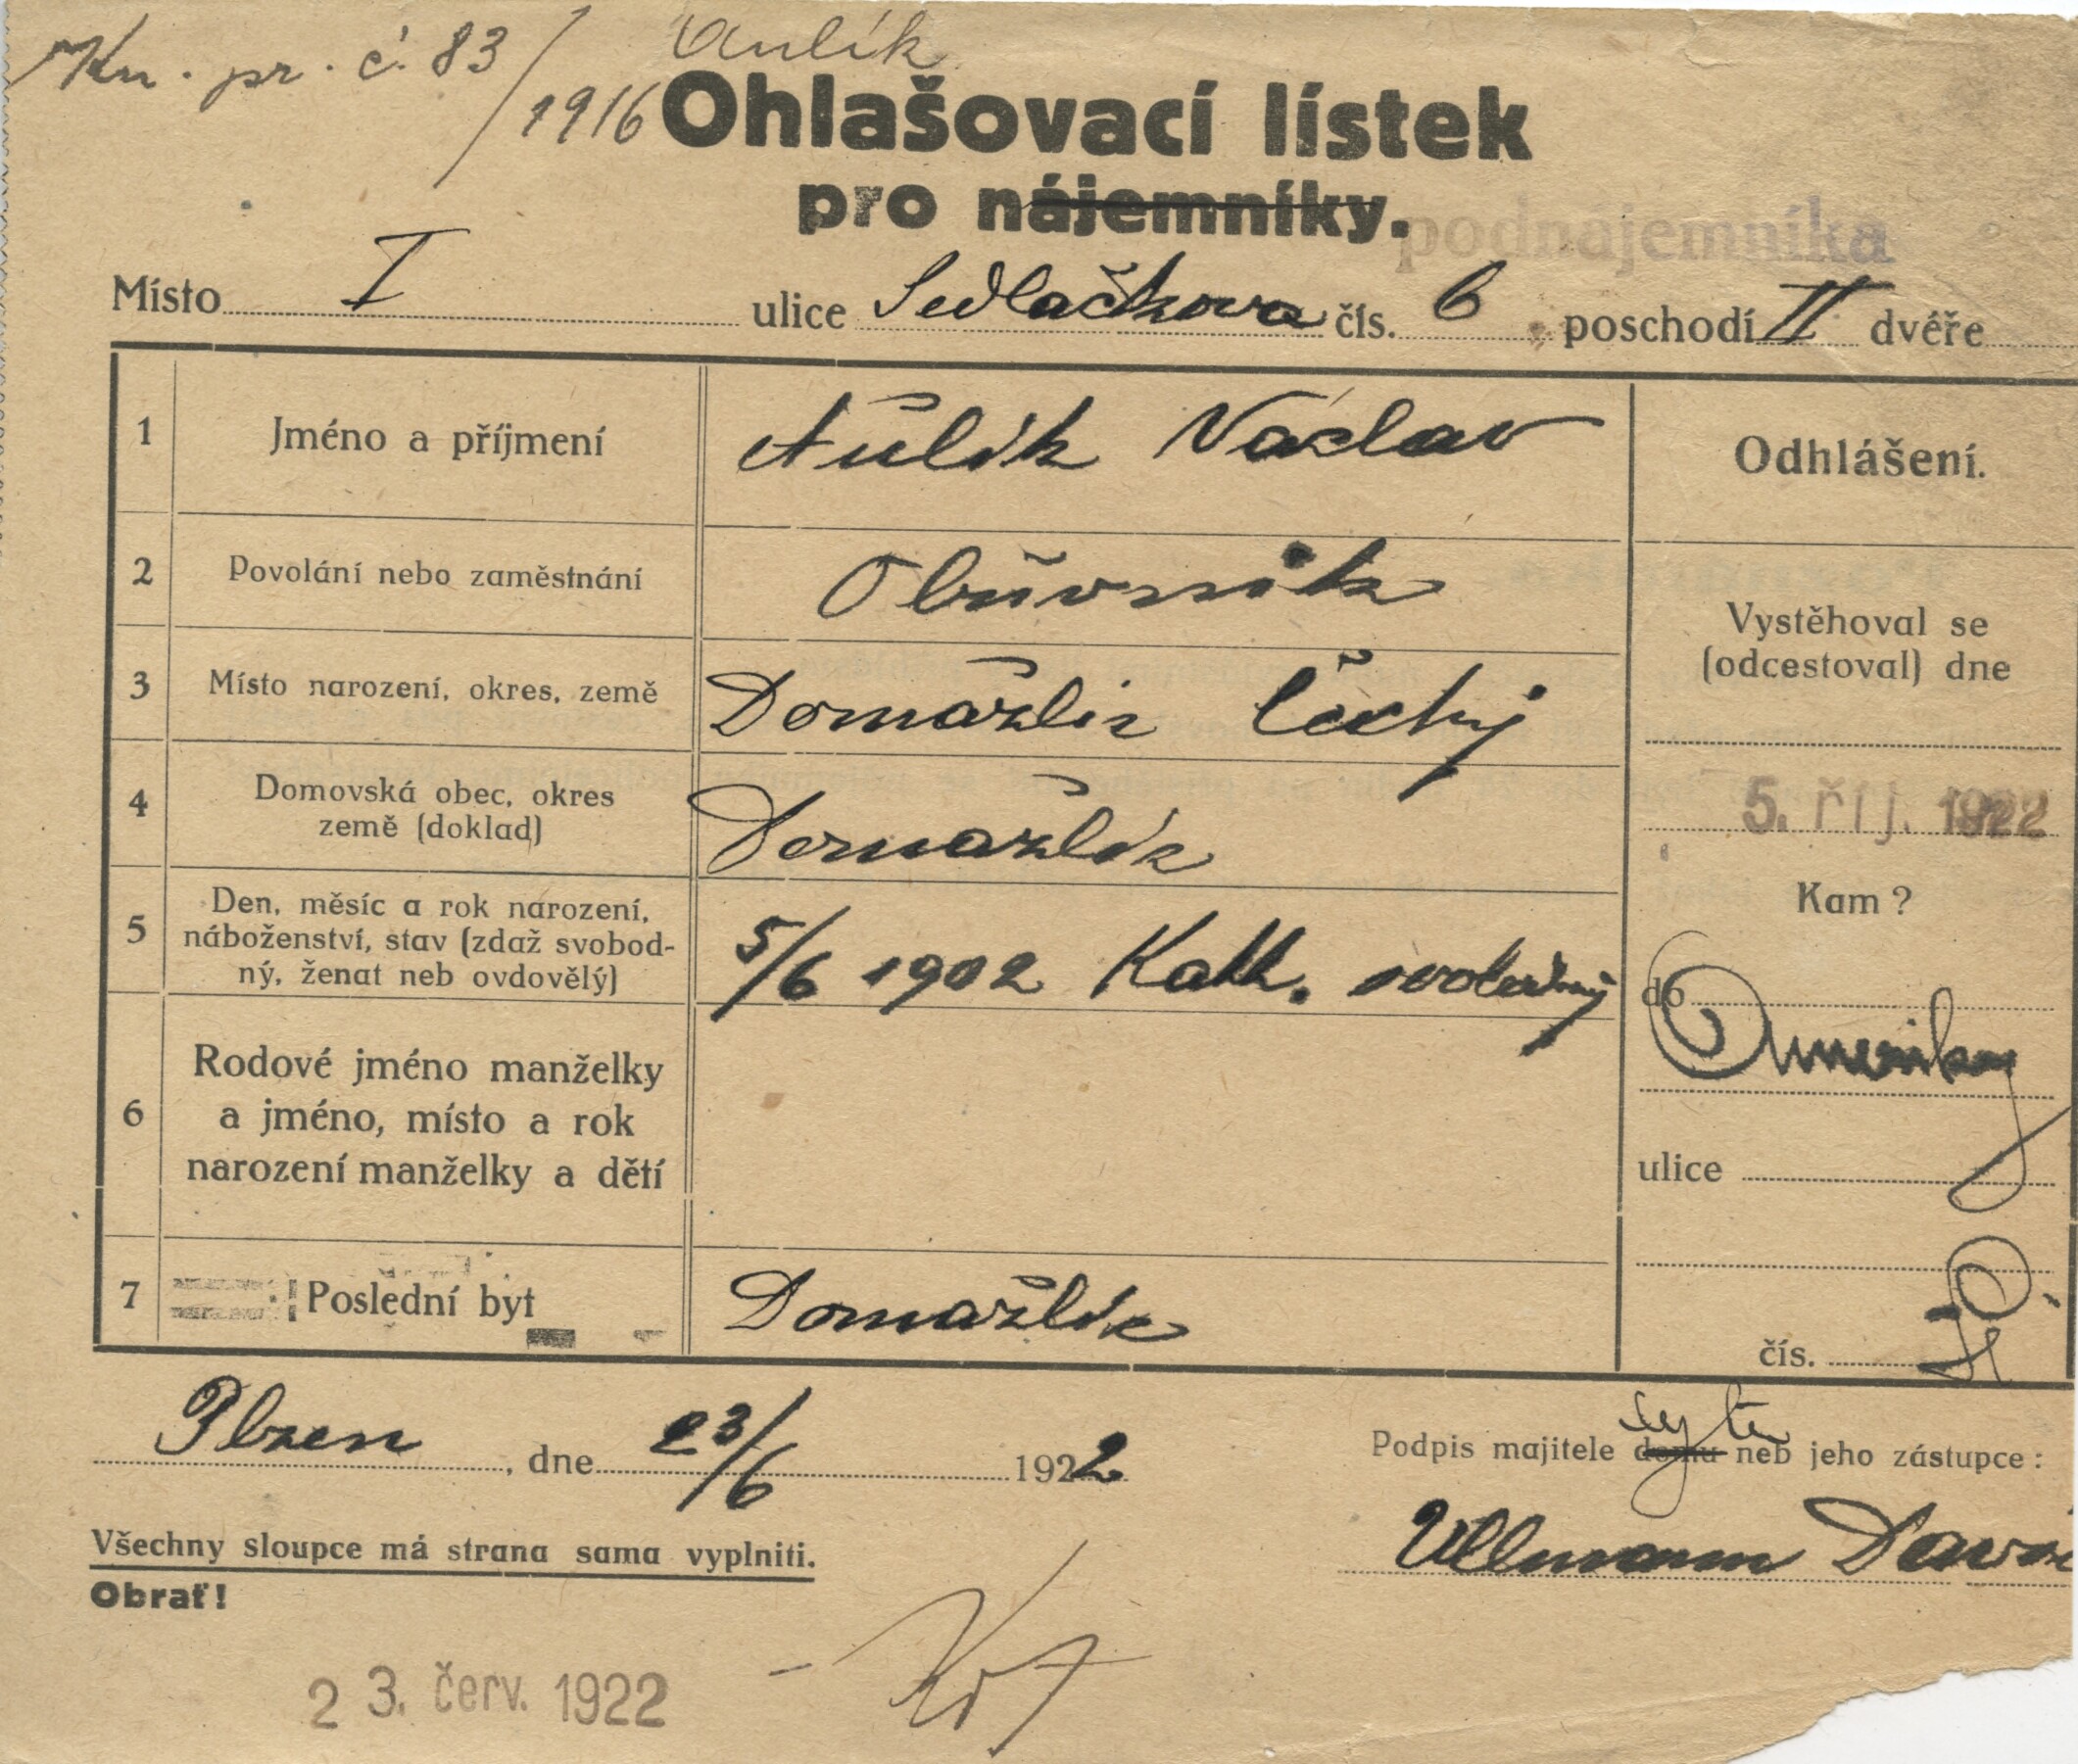 Kn. pr. č. 83/1916 Aulík
Ohlašovací lístek
pro nájemníky. podnájemníka
Místo I ulice Sedlačkova čís. 6 poschodí II dvéře
1 Jméno a příjmení Aulík Václav
Odhlášení.
2 Povolání nebo zaměstnání Obuvník
Vystěhoval se
(odcestoval) dne
3 Místo narození, okres, země Domažlic Čechy
4 Domovská obec, okres
země (doklad) Domažlic
5. říj. 1922
Kam?
5 Den, měsíc a rok narození,
náboženství, stav (zdaž svobod-
ný, ženat neb ovdovělý) 5/6 1902 Kath. svobodný
do
Ameriky
6 Rodové jméno manželky
a jméno, místo a rok
narození manželky a dětí
ulice
7 Poslední byt Domažlic
čís.
Plzen, dne 23/6 1922
Podpis majitele domu bytu neb jeho zástupce:
Ullmann David
Všechny sloupce má strana sama vyplniti.
Obrať!
23. červ. 1922